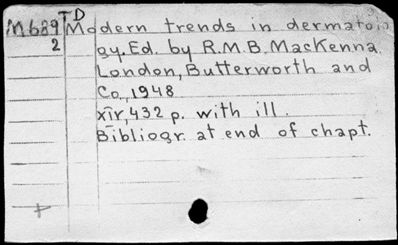 TD
M689 Modern trends in dermatolo
2 gy. Ed. by R.M.B. MacKenna.
London, Butterworth and
Co, 1948
xiv, 432 p. with ill.
Bibliogr. at end of chapt.